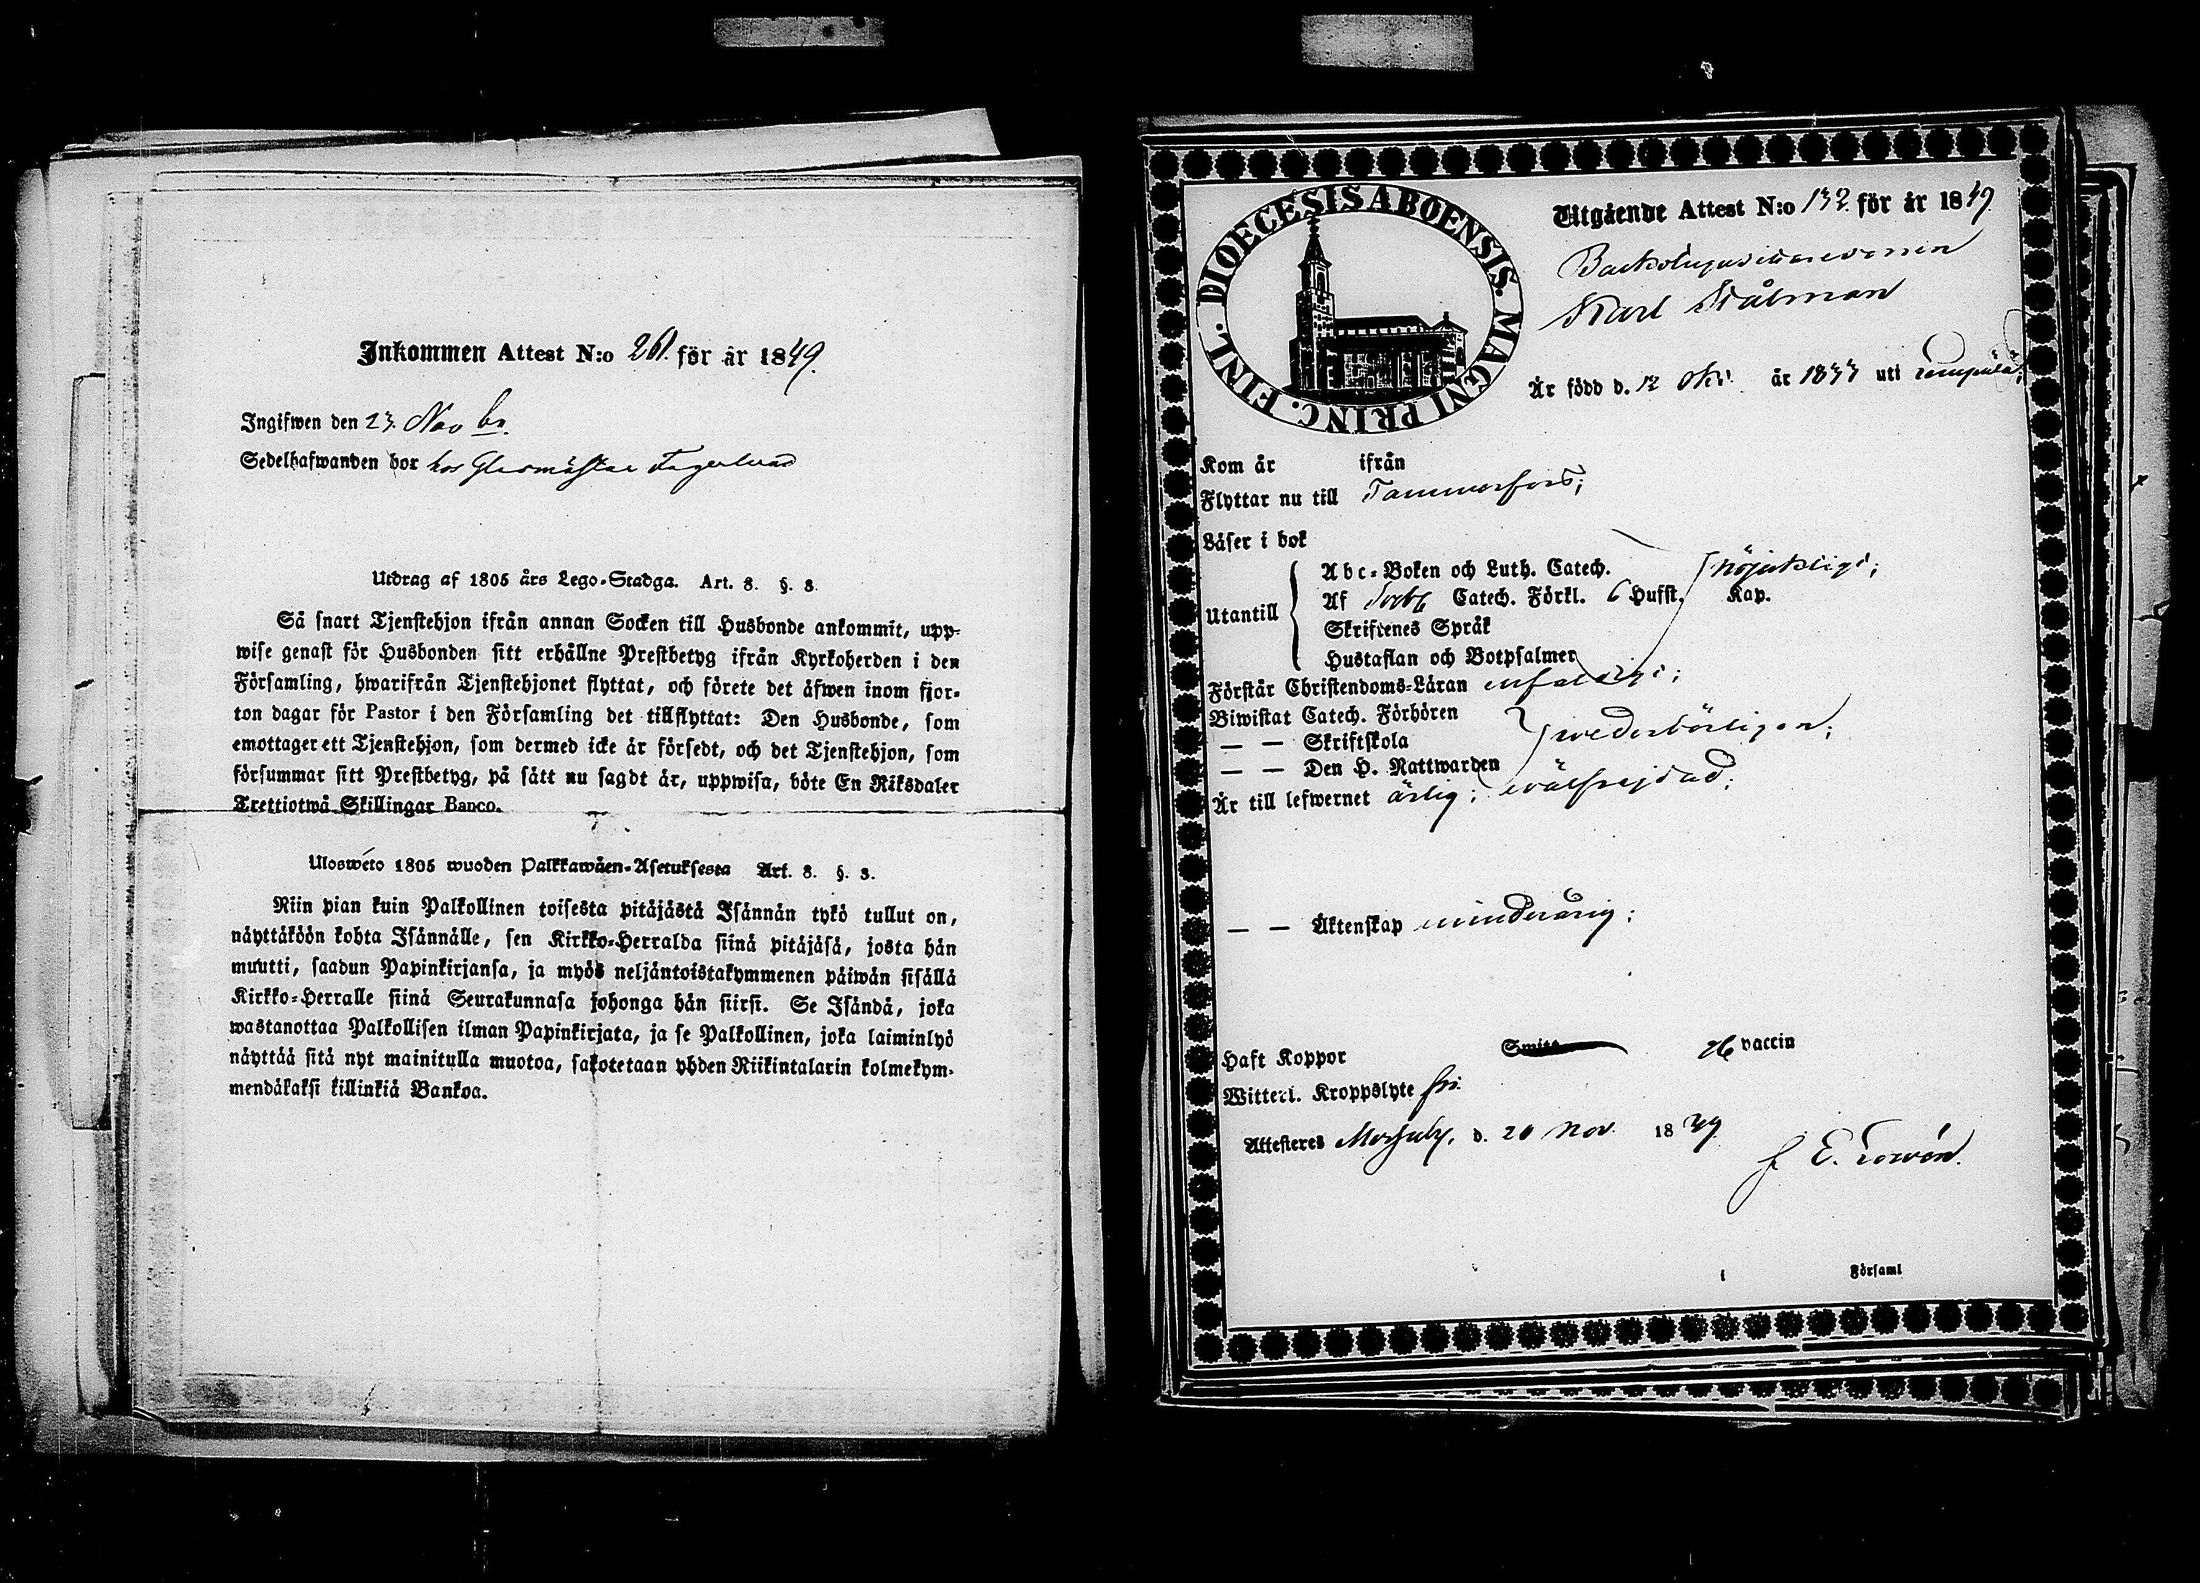 Inkommen Attest N:o 261. för år 1849.
Ingifwen den 23. Novbr.
Sedelhafwanden bor hos Glasmästar Fagerlund
Utdrag af 1805 års Lego-Stadga. Art. 8. §. 3.
Så snart Tjenstehjon ifrån annan Socken till Husbonde ankommit, upp-
wise genast för Husbonden sitt erhållne Prestbetyg ifrån Kyrkoherden i den
Församling, hwarifrån Tjenstehjonet flyttat, och förete det äfwen inom fjor-
ton dagar för Pastor i den Församling det tillflyttat: Den Husbonde, som
emottager ett Tjenstehjon, som dermed icke är försedt, och det Tjenstehjon, som
försummar sitt Prestbetyg, på sätt nu sagdt är, uppwisa, böte En Riksdaler
Trettiotwå Skillingar Banco.
Uloswéto 1805 wuoden Palkkawäen-Asetuksesta Art. 8. §. 3.
Niin pian kuin Palkollinen toisesta pitäjästä Isännän tykö tullut on,
näyttäköön kohta Isännälle, sen Kirkko-Herralda siinä pitäjäsä, josta hän
muutti, saadun Papinkirjansa, ja myös neljäntoistakymmenen päiwän sisällä
Kirkko-Herralle siinä Seurakunnasa johonga hän siirsi. Se Isändä, joka
wastanottaa Palkollisen ilman Papinkirjata, ja se Palkollinen, joka laiminlyö
näyttää sitä nyt mainitulla muotoa, sakotetaan yhden Riikintalarin kolmekym-
mendäkaksi killinkiä Bankoa.
DIOECESIS ABOENSIS. MAGNI PRINC. FINL.
Utgående Attest N:o 132. för år 1849.
Backstugusittaresonen
Karl Stålman
Är född d. 12 Okt. år 1833 uti Lempälä;
Kom år ifrån
Flyttar nu till Tammerfors;
Läser i bok
Abc-Boken och Luth. Catech. nöjaktligt;
Utantill
Af Catech. Förkl. 6 Hufst. Kap.
Skriftenes Språk
Hustaflan och Botpsalmer
Förstår Christendoms-Läran enfaldigt;
Biwistat Catech. Förhören
— — Skriftskola wederbörligen;
— — Den H. Nattwarden
Är till lefwernet ärlig; wälfrejdad;
— — Äktenskap minderårig;
Haft Koppor vaccin
Witterl. Kroppslyte fri.
Attesteres d. 20 Nov. 1849.
i Församl